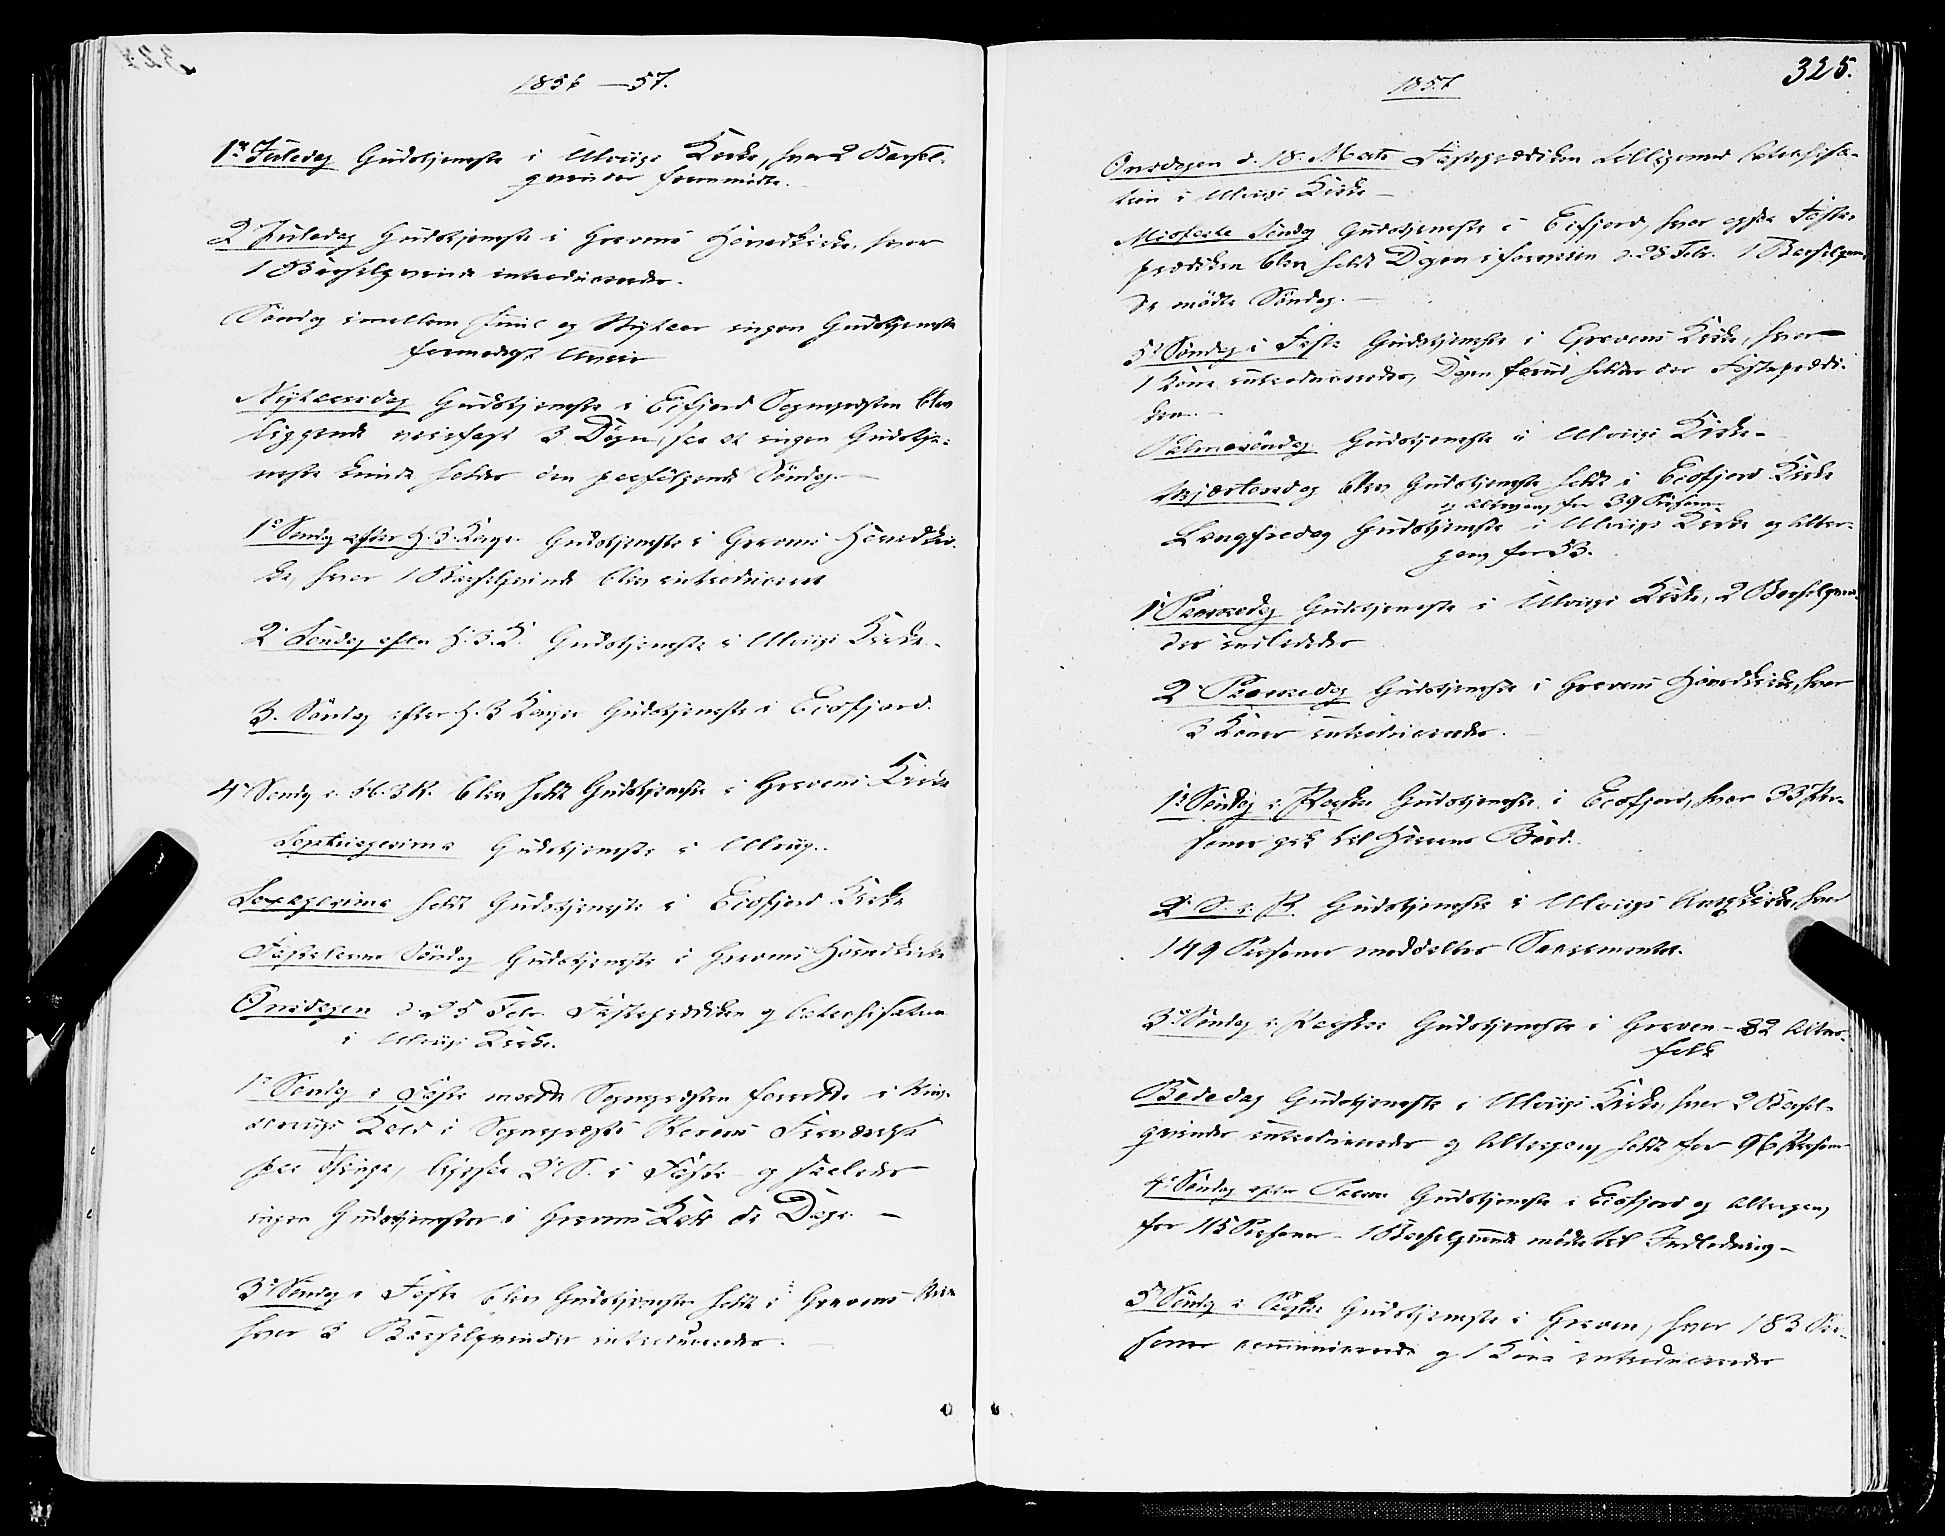 1856—57.
1ste Juledag Gudstjeneste i Ulvigs Kirke, hvor 2 Barsel-
qvinder fremmødte.
2 Juledag Gudstjeneste i Gravens Hovedkirke, hvor
1 Barselqvinde introduceredes.
Søndag imellem Juul og Nytaar ingen Gudstjeneste
formedelst Uveir
Nytaarsdag Gudstjeneste i Eifjord Sognepresten blev
liggende veirfast 3 Døgn, saa at ingen Gudstje-
neste kunde holdes den paafølgende Søndag.—
1e Søndag efter H. 3 Konger Gudstjeneste i Gravens Hovedkir-
ke, hvor 1 Barselqvinde blev introduceret
2 Søndag efter H. 3. K. Gudstjeneste i Ulvigs Kirke.
3. Søndag efter H. 3 Konger Gudstjeneste i Eidfjord.
4 Søndag e. H. 3 K. blev holdt Gudstjeneste i Gravens Kirke
Septuagesima Gudstjeneste i Ulvig.
Sexagesima holdt Gudstjeneste i Eidfjord Kirke
Fastelavns Søndag Gudstjeneste i Gravens Hovedkirke
Onsdagen d 25 Febr. Fasteprædiken og Catechisation
i Ulvigs Kirke.
1e Søndag i Faste maatte Sognepresten forrette i Kin-
serviigs Kald i Sogneprest
paa Thinge, ligesaa 2 S. i Faste og saaledes
ingen Gudstjenester i Gravens Kald de Dage.—
3 Søndag i Faste blev Gudstjeneste holdt i Gravens Kirke
hvor 2 Barselqvinder introduceredes.
325.
1857
Onsdagen d. 18. Marts Fasteprædiken tilligemed Catechisa-
tion i Ulvigs Kirke—
Midfaste Søndag Gudstjeneste i Eifjord, hvor ogsaa Faste-
prædiken blev holdt Dagen iforveien d. 28 Febr. 1 Barselqvin-
de mødte Søndag.—
5 Søndag i Faste Gudstjeneste i Gravens Kirke, hvor
1 Kone introduceredes, Dagen forud holdtes der Fasteprædi-
ken.—
Palmesøndag Gudstjeneste i Ulvigs Kirke—
Skjærtorsdag blev Gudstjeneste holdt i Eidfjord Kirke
og Altergang for 39 Personer
Langfredag Gudstjeneste i Ulvigs Kirke og Alter-
gang for 53.
1 Paaskedag Gudstjeneste i Ulvigs Kirke, 2 Barselqvin-
der indlededes
2 Paaskedag Gudstjeneste i Gravens Hovedkirke, hvor
3 Koner introduceredes.
1e Søndag e. Paaske Gudstjeneste i Eidfjord, hvor 33 Per-
soner gik til Herrens Bord.
2 S. e. P. Gudstjeneste i Ulvigs Annexkirke, hvor
149 Personer meddeltes Sacramentet.
3e Søndag e. Paaske Gudstjeneste i Graven— 82 Alter-
folk
Bededag Gudstjeneste i Ulvigs Kirke, hvor 2 Barsel-
qvinder introduceredes og Altergang holdt for 96 Personer
4e Søndag efter Paaske Gudstjeneste i Eidfjord og Altergang
for 115 Personer— 1 Barselqvinde mødte til Indledning—
5 Søndag e. Paaske Gudstjeneste i Graven, hvor 183 Per-
soner communicerede og 1 Kone introduceredes